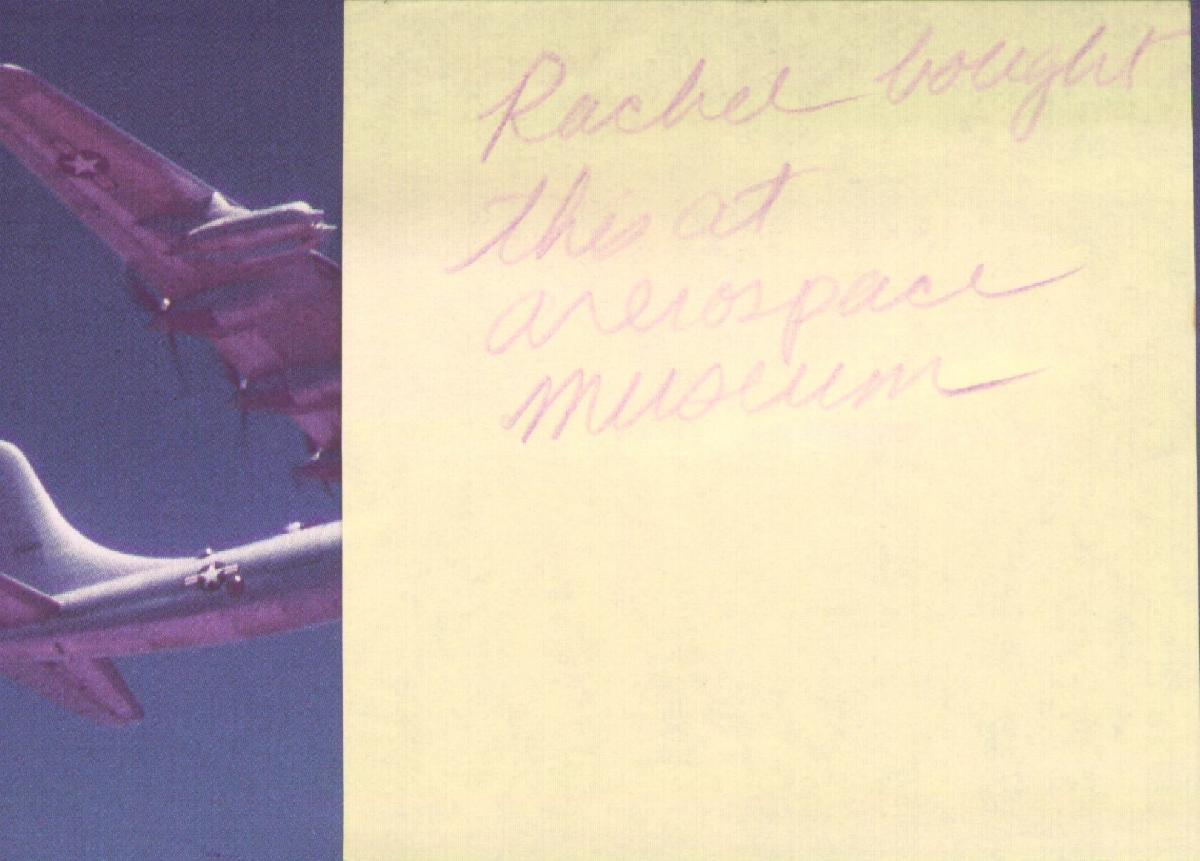 Rachel bought
this at
arerospace
museum